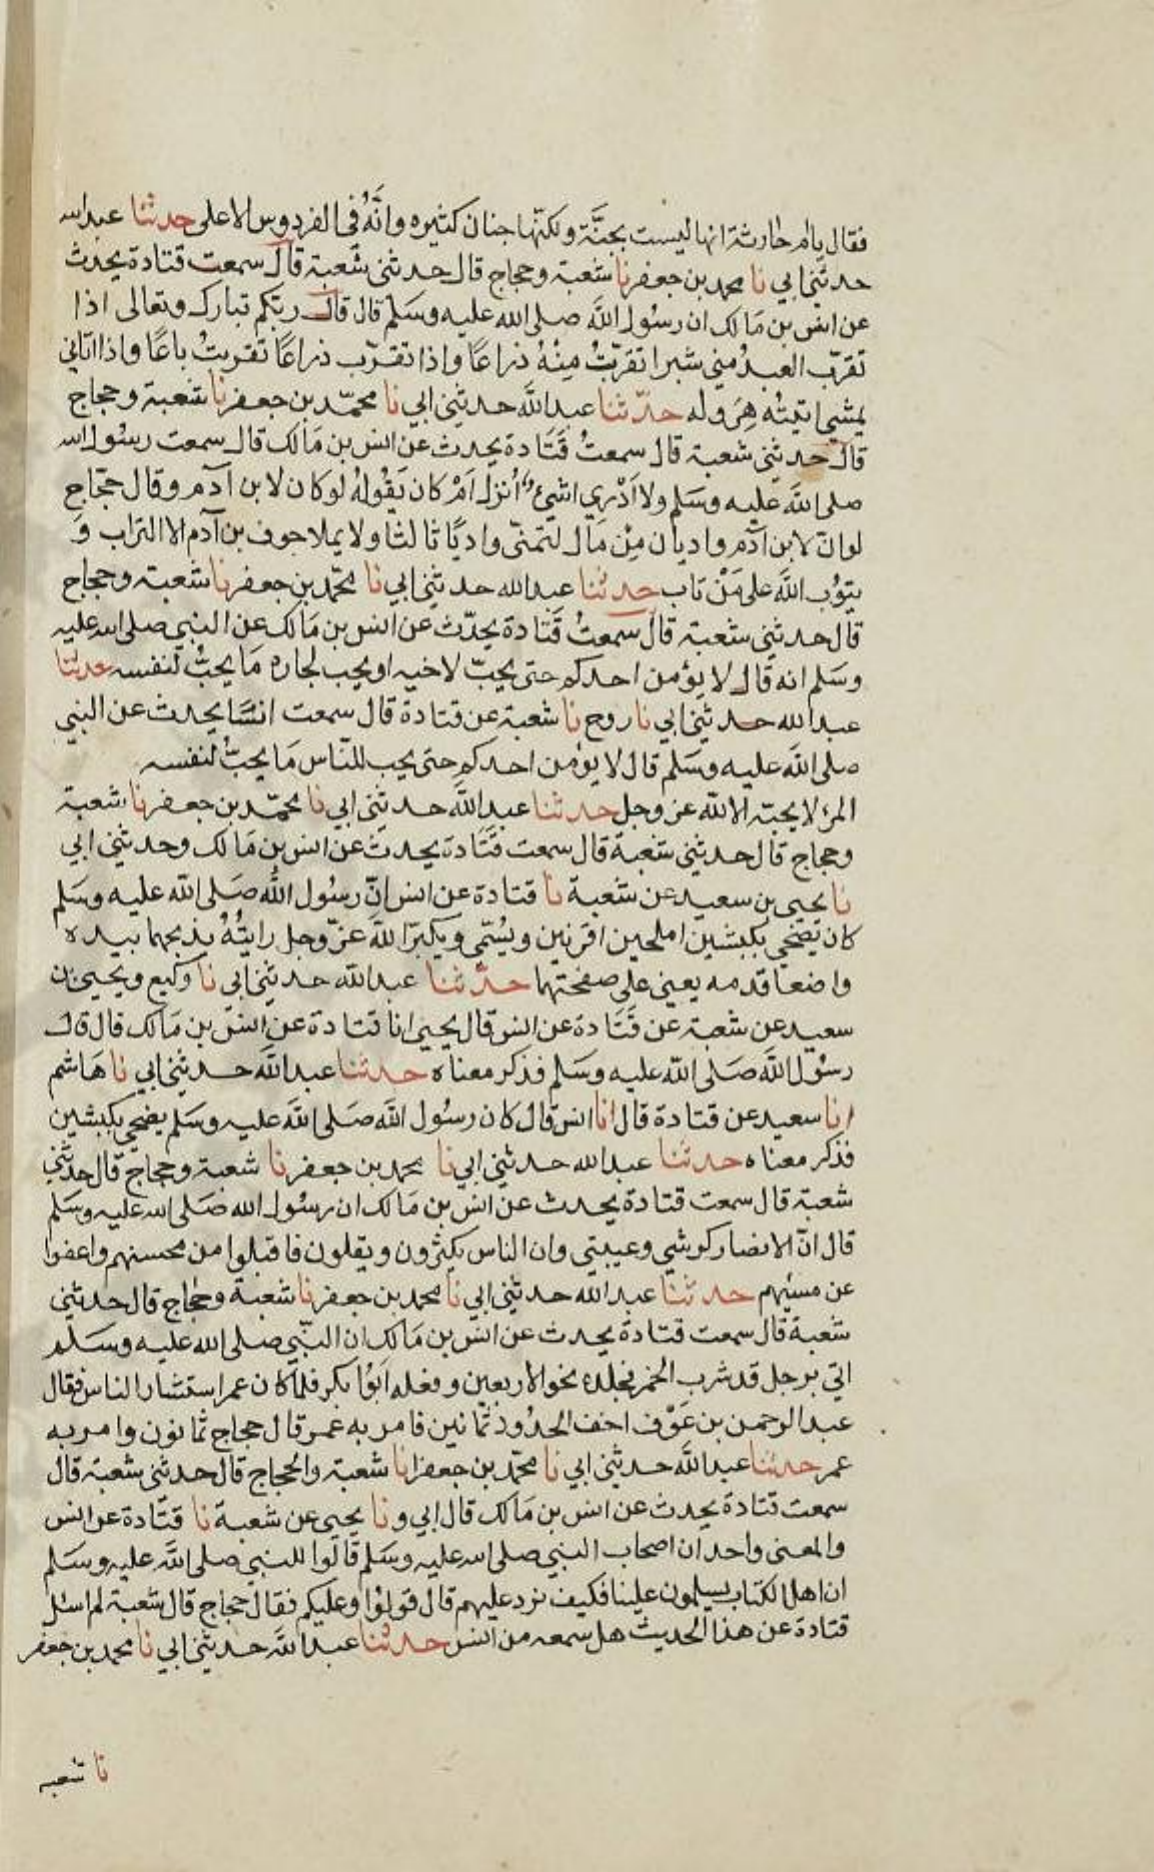 فقال يا ام حارثة انها ليست بجنَّة ولكنّها جنان كثيره وانَّهُ في الفردوس الاعلى حدثنا عبد الله
حدثني ابي نا محمد بن جعفر نا شعبة وحجاج قال حدثني شعبة قال سمعت قتادة يحدث
عن انس بن مَالك ان رسول الله صلى الله عليه وسَلم قال قال ربكم تبارك وتعالى اذا
تقرّب العبدُ مني شبرا تقرّبتُ مِنْهُ ذراعًا واذا تقرّب ذراعًا تقربتُ باعًا واذا اتاني
يمشي اتيتُه هَروله حدّثنا عبد اللَّه حدثني ابي نا محمّد بن جعفر نا شعبة وحجاج
قال حدثني شعبة قال سمعتُ قَتَادة يحدث عن انس بن مَالك قال سمعت رسُول الله
صلى اللَّه عليه وسَلم ولا اَدْري اشيءٌ اُنزل اَمْ كان يَقُولهُ لو كان لابن آدم وقال حجّاج
لو انّ لابن آدم واديان مِنْ مَال لتمنّى واديًا ثالثا ولا يملا جوف بن آدم الا التراب وَ
يتوُب اللَّه على مَنْ تاب حدثنا عبد الله حدثني ابي نا محمّد بن جعفر نا شعبة وحجاج
قال حدثني شعبة قال سمعتُ قَتَادة يحدّث عن انس بن مَالك عن النبي صلى الله عليه
وسَلم انه قال لا يؤمن احدكم حتى يحبّ لاخيه او يحب لجاره مَا يحبُّ لنفسه حدثنا
عبد الله حدثني ابي نا روح نا شعبة عن قتادة قال سمعت انسًا يحدث عن النبي
صلى اللَّه عليه وسَلم قال لا يؤمن احدكم حتى يحب للنّاس مَا يحبُّ لنفسه
المرء لا يحبّه الا لله عز وجل حدثنا عبد اللَّه حدثني ابي نا محمّد بن جعفر نا شعبة
وحجاج قال حدثني شعبة قال سمعت قَتَادة يحدث عن انس بن مَالك وحدثني ابي
نا يحيى بن سعيد عن شعبة نا قتادة عن انس انّ رسُول اللَّه صَلى الله عليه وسَلم
كان يضحي بكبشين املحين اقرنين ويُسَمّي ويكبّر اللَّه عزّ وجل رايتُهُ يذبحهما بيده
واضعا قدمه يعني على صفحتهما حدّثنا عبد الله حدثني ابي نا وكيع ويحيى بن
سعيد عن شعبة عن قَتَادة عن انس قال يحيى انا قتادة عن انس بن مَالك قال قال
رسُول اللَّه صَلى اللَّه عليه وسَلم فذكر معناه حدثنا عبد اللَّه حدثني ابي نا هَاشم
انا سعيد عن قتادة قال انا انس قال كان رسُول اللَّه صَلى اللَّه عليه وسَلم يضحي بكبشين
فذكر معناه حدثنا عبد الله حدثني ابي نا محمد بن جعفر نا شعبة وحجاج قال حدثني
شعبة قال سمعت قتادة يحدث عن انس بن مَالك ان رسُول الله صَلى الله عليه وسَلم
قال انّ الانصار كرشي وعيبتي وان الناس يكثرون ويقلون فاقبلوا من محسنهم واعفوا
عن مسيئهم حدثنا عبد الله حدثني ابي نا محمد بن جعفر نا شعبة وحجاج قال حدثني
شعبة قال سمعت قتادة يحدث عن انس بن مَالك ان النبّي صلى الله عليه وسَلم
اتي برجل قد شرب الخمر فجلده نحو الاربعين وفعله ابَوُا بكر فلما كان عمر استشار الناس فقال
عبد الرحمن بن عَوْف اخف الحدُود ثمانين فامر به عمر قال حجاج ثمانون وامر به
عمر حدثنا عبد اللَّه حدثني ابي نا محمّد بن جعفر انا شعبة والحجاج قال حدثني شعبة قال
سمعت قتادة يحدث عن انس بن مَالك قال ابي ونا يحيى عن شعبة نا قتّادة عن انس
والمعنى واحد ان اصحاب النبي صلى الله عليه وسَلم قالوا للنبي صلى اللَّه عليه وسَلم
ان اهل الكتاب يسلمون علينا فكيف نرد عليهم قال قولوُا وعليكم فقال حجاج قال شعبة لم اسئل
قتادة عن هذا الحديث هل سمعه من انس حدثنا عبد اللَّه حدثني ابي نا محمد بن جعفر
نا شعبه